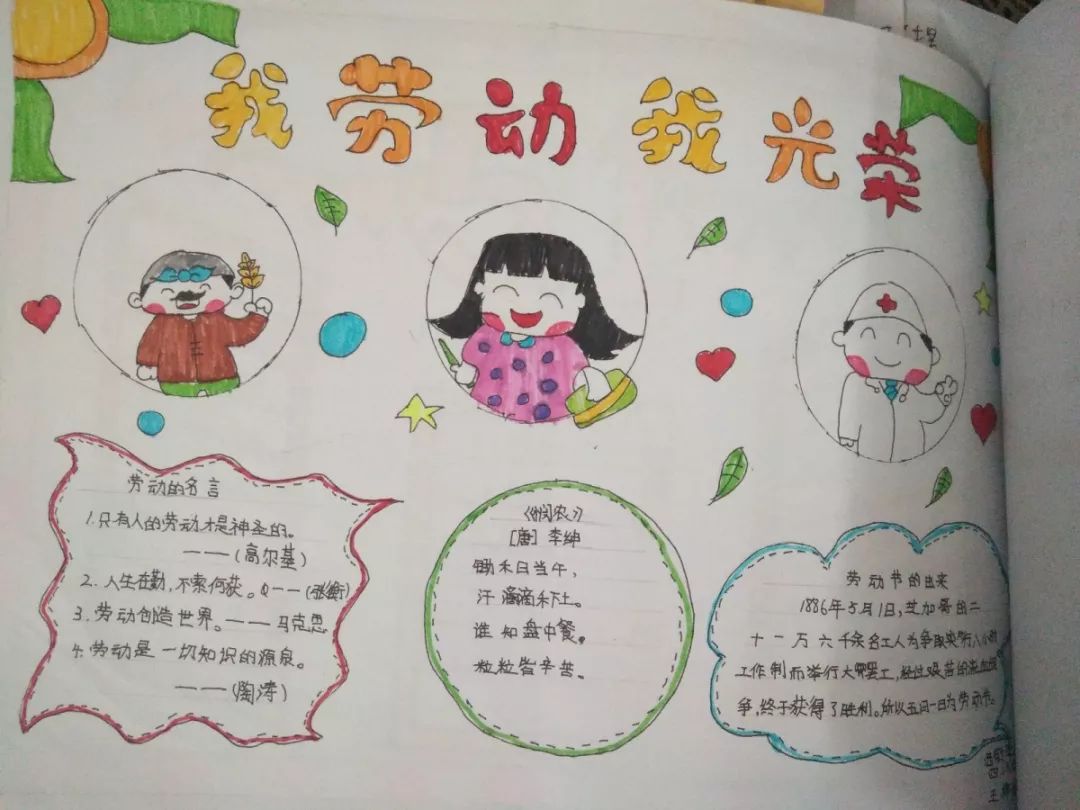 我劳动我光荣
劳动的名言
1.只有人的劳动才是神圣的。
——(高尔基)
2.人生在勤,不索何获。——(张衡)
3.劳动创造世界。——马克思
4.劳动是一切知识的源泉。
——(陶涛)
《悯农》
[唐] 李绅
锄禾日当午,
汗滴滴禾下土。
谁知盘中餐。
粒粒皆辛苦。
劳动节的由来
1886年5月1日,芝加哥的二
十一万六千余名工人为争取实行八小时
工作制而举行大罢工,经过艰苦的流血
争,终于获得了胜利。所以五月一日为劳动节。
四
王